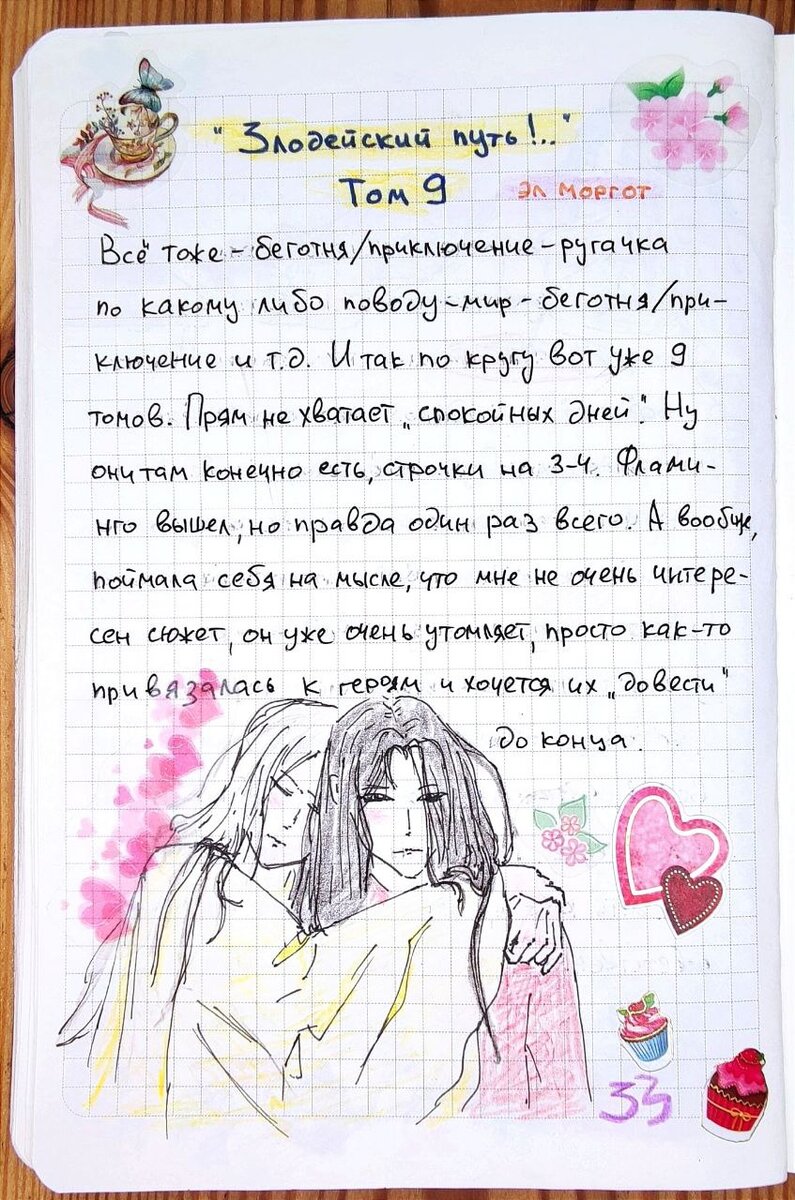 "Злодейский путь!.."
Том 9 Эл Моргот
Всё тоже - беготня/приключение - ругачка
по какому либо поводу - мир - беготня/при-
ключение и т.д. И так по кругу вот уже 9
томов. Прям не хватает „спокойных дней". Ну
они там конечно есть, строчки на 3-4. Флами-
нго вышел, но правда один раз всего. А вообще,
поймала себя на мысле, что мне не очень интере-
сен сюжет, он уже очень утомляет, просто как-то
привязалась к героям и хочется их „довести"
до конца.
33